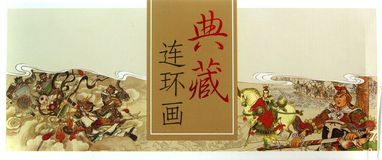 典藏
连环画